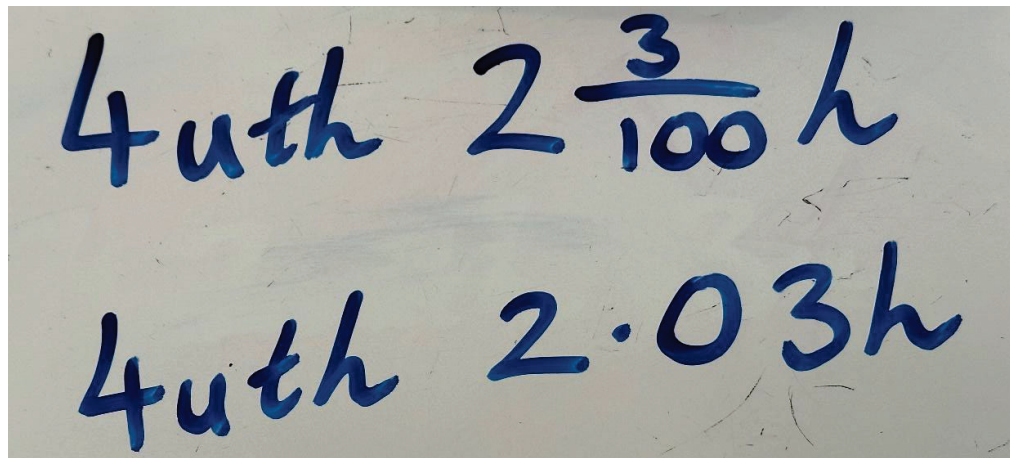 4uth 2 3/100 h
4uth 2·03h